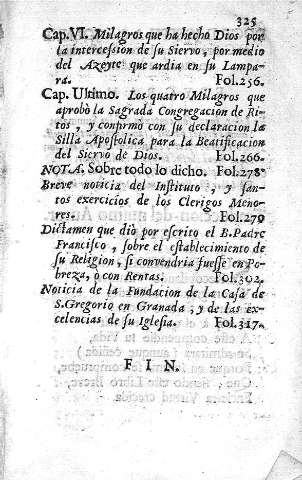 325
Cap. VI. Milagros que ha hecho Dios por
la intercession de su Siervo, por medio
del Azeyte que ardia en su Lampa-
ra. Fol.256.
Cap. Ultimo. Los quatro Milagros que
aprobò la Sagrada Congregacion de Ri-
tos, y confirmò con su declaracion la
Silla Apostolica para la Beatificacion
del Siervo de Dios. Fol.266.
NOTA. Sobre todo lo dicho. Fol.278
Breve noticia del Instituto, y san-
tos exercicios de los Clerigos Meno-
res. Fol.279
Dictamen que diò por escrito el B. Padre
Francisco, sobre el establecimiento de
su Religion, si convendria fuesse en Po-
breza, o con Rentas. Fol.302.
Noticia de la Fundacion de la Casa de
S. Gregorio en Granada, y de las ex-
celencias de su Iglesia. Fol.317.
FIN.